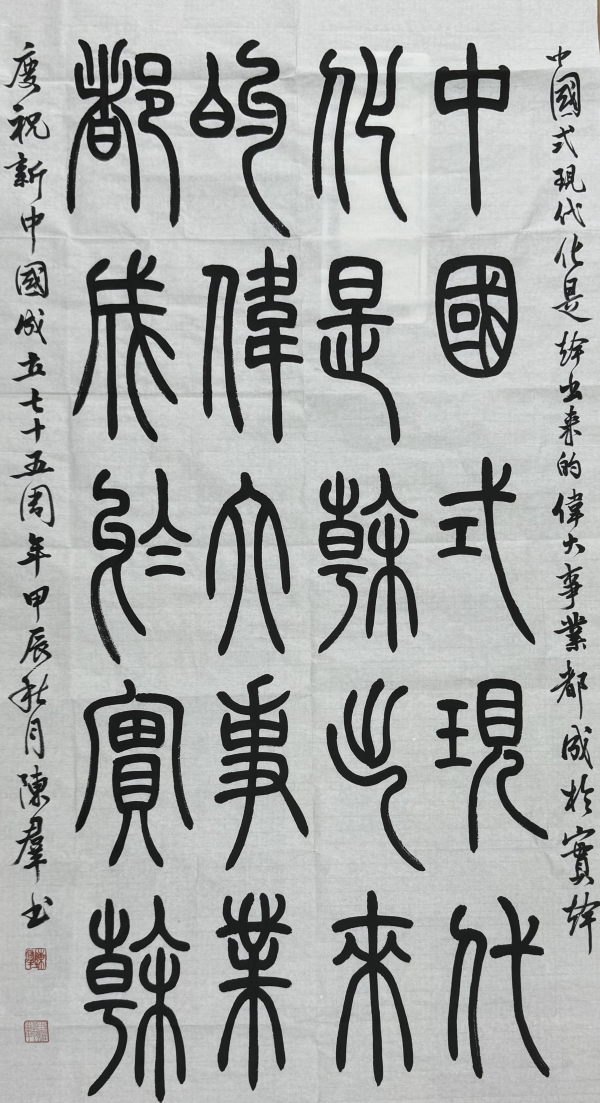 中國式現代化是幹出来的偉大事業都成於實幹
中國式現代
化是榦出來
的偉大事業
都成於實榦
慶祝新中國成立七十五周年甲辰秋月陳羣书